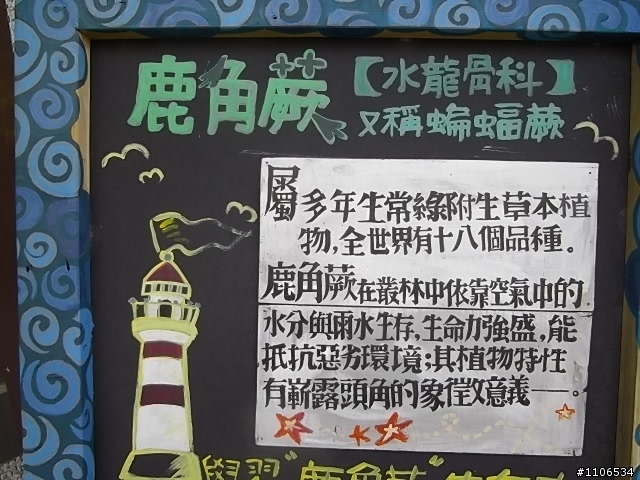 鹿角蕨【水龍骨科】
又稱蝙蝠蕨
屬多年生常綠附生草本植
物,全世界有十八個品種。
鹿角蕨在叢林中依靠空氣中的
水分與雨水生存,生命力強盛,能
抵抗惡劣環境;其植物特性
有嶄露頭角的象徵意義—。
學習"鹿角蕨"
#1106534